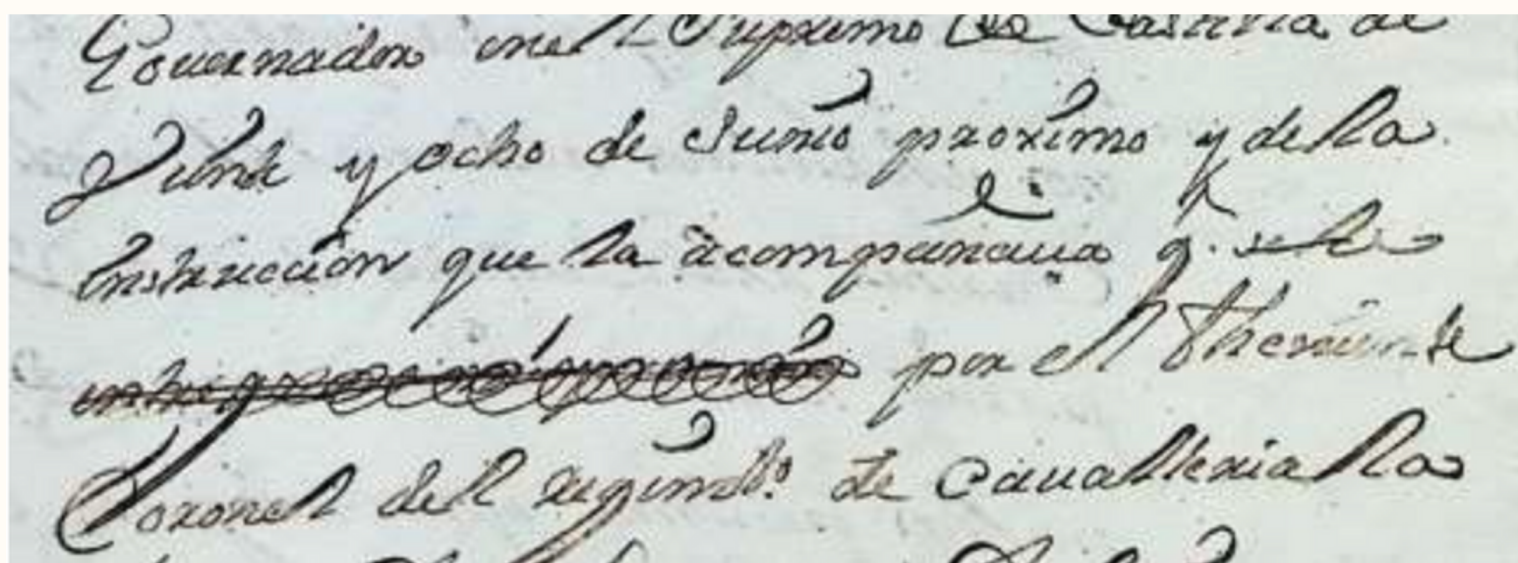 Governador en el Supremo de Castilla de
Veinte y ocho de Junio proximo y de la
Instruccion que la acompañaua q.
por el Theniente
Coronel del regimto. de Caualleria la